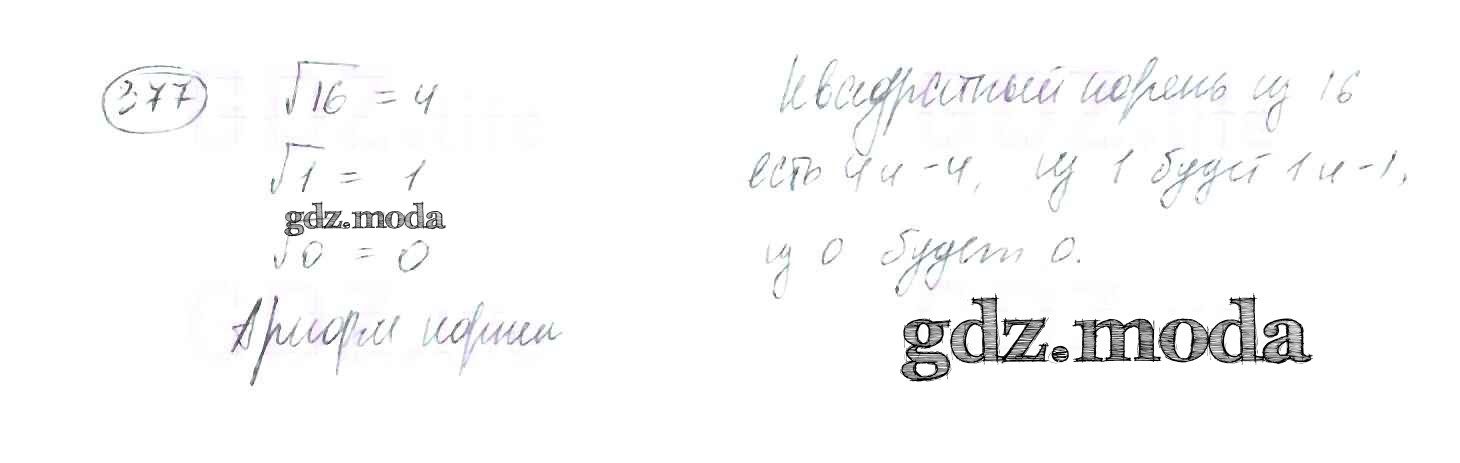 377
√16 = 4
√1 = 1
gdz.moda
√0 = 0
Арифм корни
Квадратный корень из 16
есть 4 и -4, из 1 будет 1 и -1,
из 0 будет 0.
gdz.moda